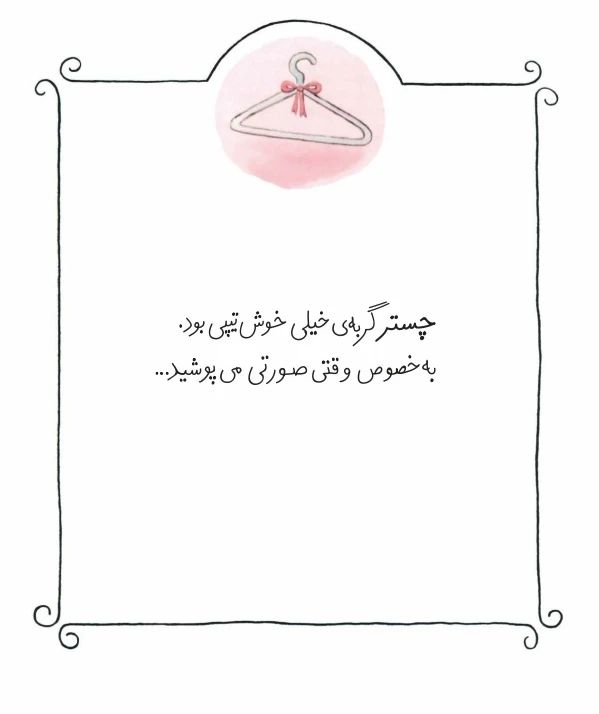 چستر گربه‌ی خیلی خوش‌تیپی بود.
به‌خصوص وقتی صورتی می‌پوشید...